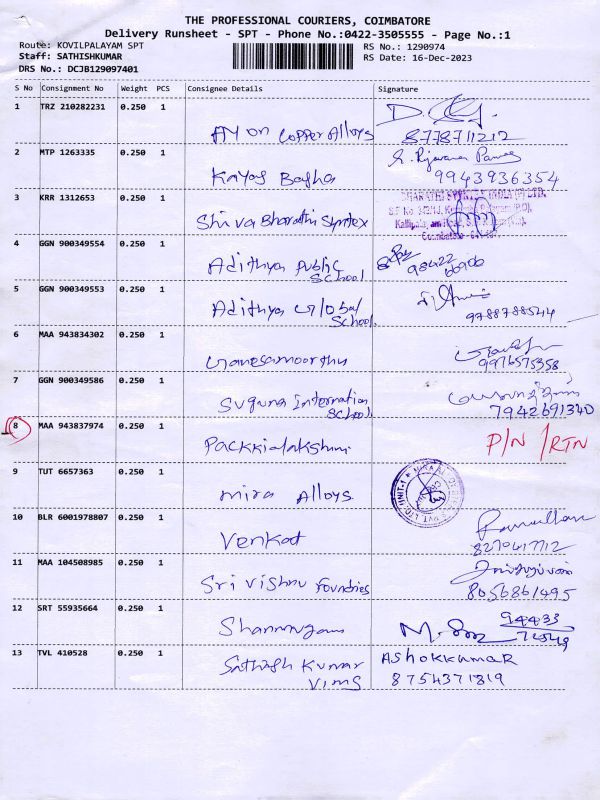 THE PROFESSIONAL COURIERS, COIMBATORE
Delivery Runsheet - SPT - Phone No.:0422-3505555 - Page No.:1
Route: KOVILPALAYAM SPT
RS No.: 1290974
Staff: SATHISHKUMAR
RS Date: 16-Dec-2023
DRS No.: DCJB129097401
S No Consignment No Weight PCS Consignee Details Signature
1 TRZ 210282231 0.250 1
Ayon Copper Alloys 8778711212
2 MTP 1263335 0.250 1
Kayas Basha 9943936354
3 KRR 1312653 0.250 1
Shiva Bharathi Syntex
4 GGN 900349554 0.250 1
Adithya Public School 98422
5 GGN 900349553 0.250 1
Adithya Global School 9788788544
6 MAA 943834302 0.250 1
Ganesamoorthy 9976575358
7 GGN 900349586 0.250 1
Suguna Internation School 7942691340
8 MAA 943837974 0.250 1
Packkialakshmi P/N /RTN
9 TUT 6657363 0.250 1
Mira Alloys
10 BLR 6001978807 0.250 1
Venkat 8270417712
11 MAA 104508985 0.250 1
Sri Vishnu Foundries 8056861495
12 SRT 55935664 0.250 1
Shanmugam 94433
13 TVL 410528 0.250 1
Sathish Kumar ASHOKKUMAR
VIMS 8754371819